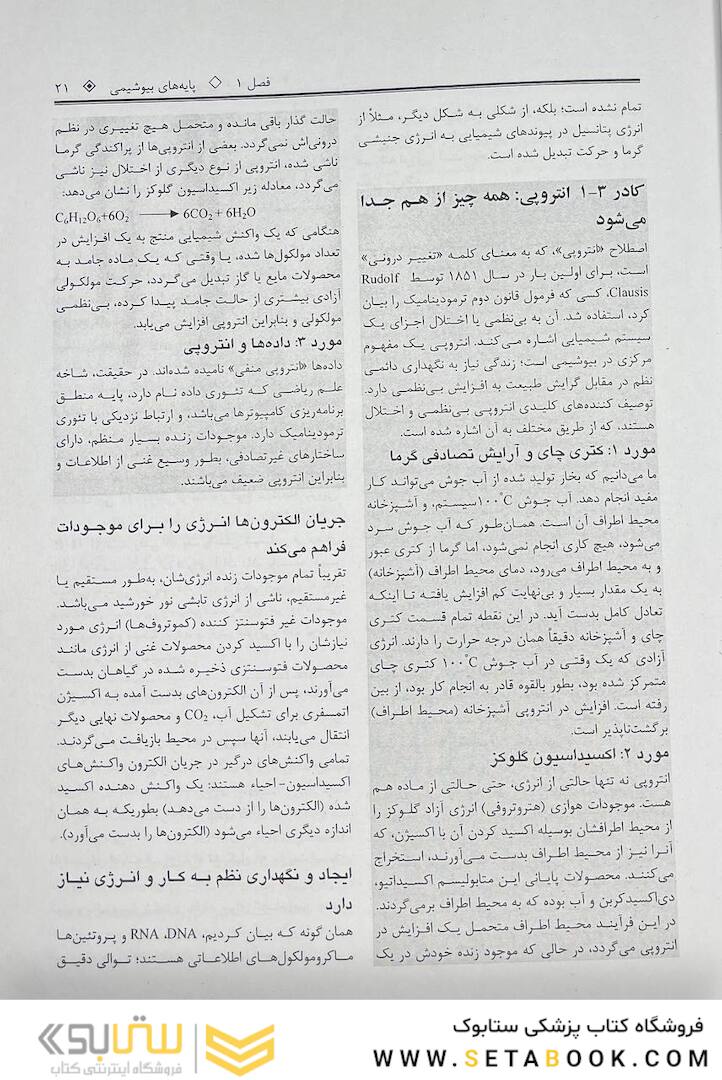 فصل ۱ ◇ پایه‌های بیوشیمی ◈ ۲۱
تمام نشده است؛ بلکه، از شکلی به شکل دیگر، مثلاً از
انرژی پتانسیل در پیوندهای شیمیایی به انرژی جنبشی
گرما و حرکت تبدیل شده است.
کادر ۳-۱ انتروپی: همه چیز از هم جدا
می‌شود
اصطلاح «انتروپی»، که به معنای کلمه «تغییر درونی»
است، برای اولین بار در سال ۱۸۵۱ توسط Rudolf
Clausis، کسی که فرمول قانون دوم ترمودینامیک را بیان
کرد، استفاده شد. آن به بی‌نظمی یا اختلال اجزای یک
سیستم شیمیایی اشاره می‌کند. انتروپی یک مفهوم
مرکزی در بیوشیمی است؛ زندگی نیاز به نگهداری دائمی
نظم در مقابل گرایش طبیعت به افزایش بی‌نظمی دارد.
توصیف کننده‌های کلیدی انتروپی بی‌نظمی و اختلال
هستند، که از طریق مختلف به آن اشاره شده است.
مورد ۱: کتری چای و آرایش تصادفی گرما
ما می‌دانیم که بخار تولید شده از آب جوش می‌تواند کار
مفید انجام دهد. آب جوش ۱۰۰°C سیستم، و آشپزخانه
محیط اطراف آن است. همان‌طور که آب جوش سرد
می‌شود، هیچ کاری انجام نمی‌شود، اما گرما از کتری عبور
و به محیط اطراف می‌رود، دمای محیط اطراف (آشپزخانه)
به یک مقدار بسیار و بی‌نهایت کم افزایش یافته تا اینکه
تعادل کامل بدست آید. در این نقطه تمام قسمت کتری
چای و آشپزخانه دقیقاً همان درجه حرارت را دارند. انرژی
آزادی که یک وقتی در آب جوش ۱۰۰°C کتری چای
متمرکز شده بود، بطور بالقوه قادر به انجام کار بود، از بین
رفته است. افزایش در انتروپی آشپزخانه (محیط اطراف)
برگشت‌ناپذیر است.
مورد ۲: اکسیداسیون گلوکز
انتروپی نه تنها حالتی از انرژی، حتی حالتی از ماده هم
هست. موجودات هوازی (هتروتروفی) انرژی آزاد گلوکز را
از محیط اطرافشان بوسیله اکسید کردن آن با اکسیژن، که
آنرا نیز از محیط اطراف بدست می‌آورند، استخراج
می‌کنند. محصولات پایانی این متابولیسم اکسیداتیو،
دی‌اکسیدکربن و آب بوده که به محیط اطراف برمی‌گردند.
در این فرآیند محیط اطراف متحمل یک افزایش در
انتروپی می‌گردد، در حالی که موجود زنده خودش در یک
حالت گذار باقی مانده و متحمل هیچ تغییری در نظم
درونی‌اش نمی‌گردد. بعضی از انتروپی‌ها از پراکندگی گرما
ناشی شده، انتروپی از نوع دیگری از اختلال نیز ناشی
می‌گردد، معادله زیر اکسیداسیون گلوکز را نشان می‌دهد:
C₆H₁₂O₆+6O₂ ⟶ 6CO₂ + 6H₂O
هنگامی که یک واکنش شیمیایی منتج به یک افزایش در
تعداد مولکول‌ها شده، یا وقتی که یک ماده جامد به
محصولات مایع یا گاز تبدیل می‌گردد، حرکت مولکولی
آزادی بیشتری از حالت جامد پیدا کرده، بی‌نظمی
مولکولی و بنابراین انتروپی افزایش می‌یابد.
مورد ۳: داده‌ها و انتروپی
داده‌ها «انتروپی منفی» نامیده شده‌اند. در حقیقت، شاخه
علم ریاضی که تئوری داده نام دارد، پایه منطق
برنامه‌ریزی کامپیوترها می‌باشد، و ارتباط نزدیکی با تئوری
ترمودینامیک دارد. موجودات زنده بسیار منظم، دارای
ساختارهای غیرتصادفی، بطور وسیع غنی از اطلاعات و
بنابراین انتروپی ضعیف می‌باشند.
جریان الکترون‌ها انرژی را برای موجودات
فراهم می‌کند
تقریباً تمام موجودات زنده انرژی‌شان، به‌طور مستقیم یا
غیرمستقیم، ناشی از انرژی تابشی نور خورشید می‌باشد.
موجودات غیر فتوسنتز کننده (کموتروف‌ها) انرژی مورد
نیازشان را با اکسید کردن محصولات غنی از انرژی مانند
محصولات فتوسنتزی ذخیره شده در گیاهان بدست
می‌آورند، پس از آن الکترون‌های بدست آمده به اکسیژن
اتمسفری برای تشکیل آب، CO₂ و محصولات نهایی دیگر
انتقال می‌یابند، آنها سپس در محیط بازیافت می‌گردند.
تمامی واکنش‌های درگیر در جریان الکترون واکنش‌های
اکسیداسیون-احیاء هستند: یک واکنش دهنده اکسید
شده (الکترون‌ها را از دست می‌دهد) بطوریکه به همان
اندازه دیگری احیاء می‌شود (الکترون‌ها را بدست می‌آورد).
ایجاد و نگهداری نظم به کار و انرژی نیاز
دارد
همان گونه که بیان کردیم، RNA ،DNA و پروتئین‌ها
ماکرومولکول‌های اطلاعاتی هستند؛ توالی دقیق
فروشگاه کتاب پزشکی ستابوک
WWW.SETABOOK.COM
ستابوک
فروشگاه اینترنتی کتاب